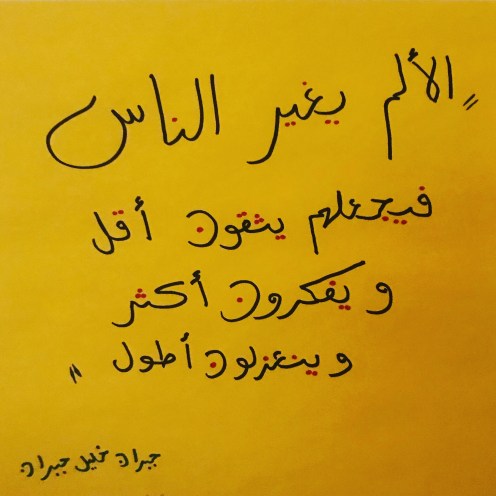 "الألم يغير الناس
فيجعلهم يثقون أقل
ويفكرون أكثر
وينعزلون أطول"
جبران خليل جبران